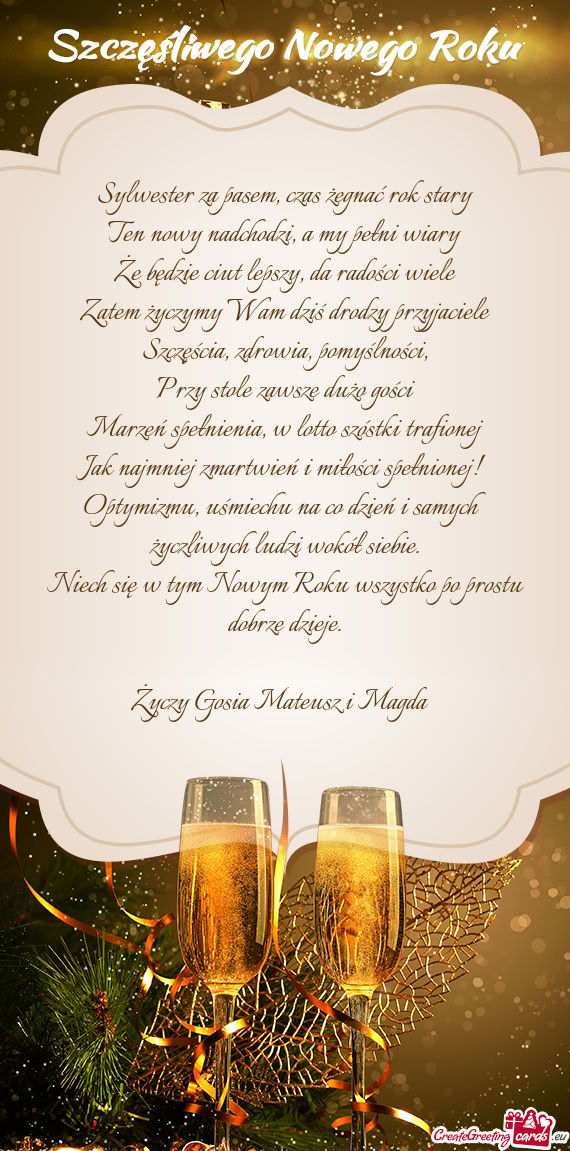 Szczęśliwego Nowego Roku
Sylwester za pasem, czas żegnać rok stary
Ten nowy nadchodzi, a my pełni wiary
Że będzie ciut lepszy, da radości wiele
Zatem życzymy Wam dziś drodzy przyjaciele
Szczęścia, zdrowia, pomyślności,
Przy stole zawszę dużo gości
Marzeń spełnienia, w lotto szóstki trafionej
Jak najmniej zmartwień i miłości spełnionej!
Optymizmu, uśmiechu na co dzień i samych
życzliwych ludzi wokół siebie.
Niech się w tym Nowym Roku wszystko po prostu
dobrzę dzieje.
Życzy Gosia Mateusz i Magda
CreateGreeting cards .eu